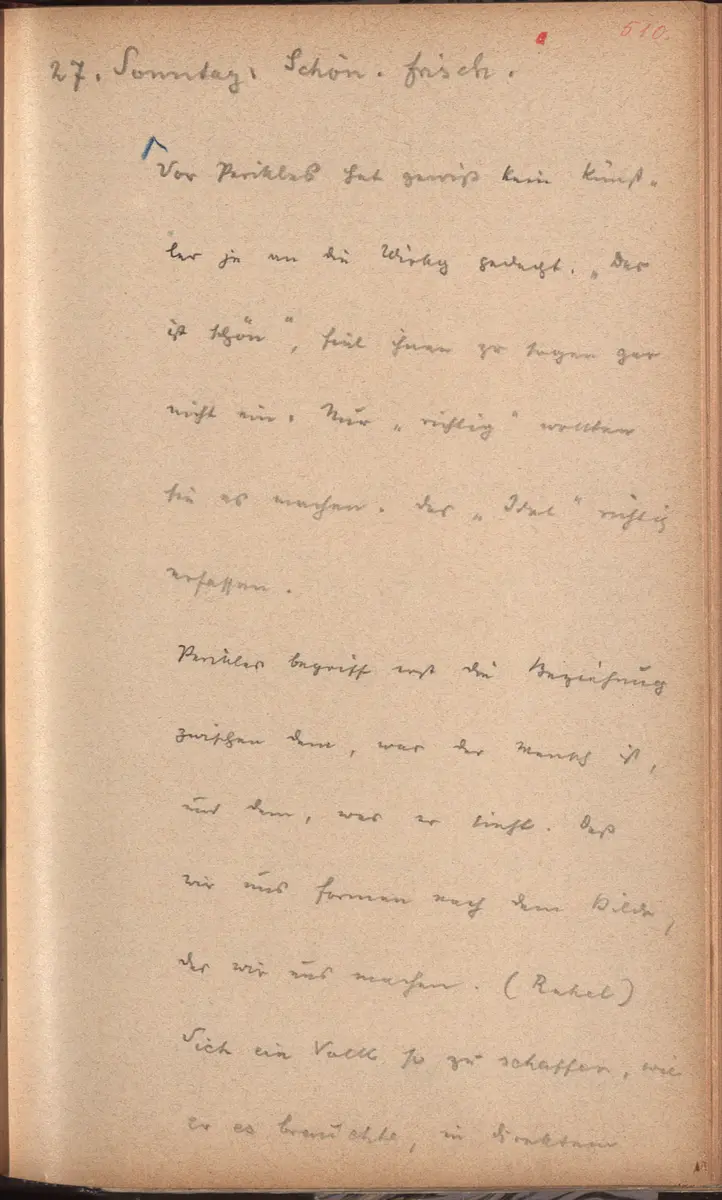 510.
27. Sonntag. Schön. frisch.
Vor Perikles hat gewiß kein Künst„
ler je an die Wirkg gedacht. „Das
ist schön", fiel ihnen zu sagen gar
nicht ein. Nur „richtig" wollten
sie es machen. Das „Ideal" richtig
erfassen.
Perikles begriff erst die Beziehung
zwischen dem, was der Mensch ist,
und dem, was er sieht. Daß
wir uns formen nach dem Bilde,
das wir uns machen. (Rahel)
Sich ein Volk so zu schaffen, wie
er es brauchte, in direktem